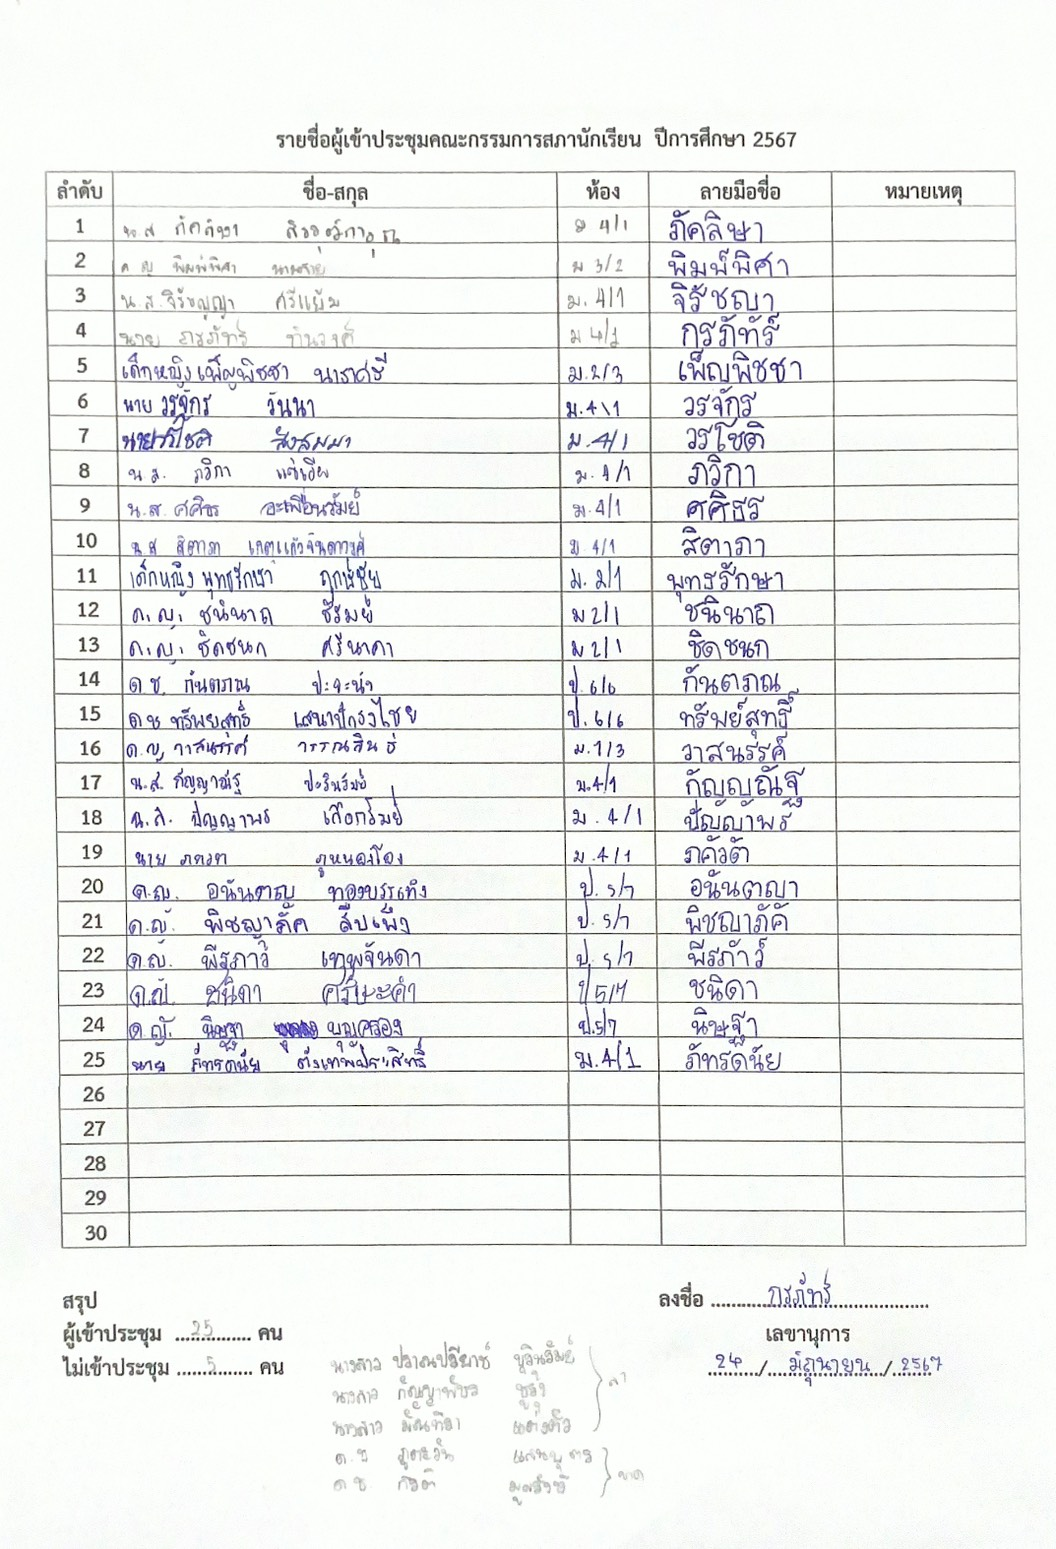 รายชื่อผู้เข้าประชุมคณะกรรมการสภานักเรียน ปีการศึกษา 2567
ลำดับ ชื่อ-สกุล ห้อง ลายมือชื่อ หมายเหตุ
1 น.ส ภัคลิษา ม 4/1 ภัคลิษา
2 ด ญ พิมพ์พิศา ม 3/2 พิมพ์พิศา
3 น.ส.จิรัชญญา ศรีแย้ม ม. 4/1 จิรัชญา
4 นาย กรภัทร์ ม 4/1 กรภัทร์
5 เด็กหญิง เพ็ญพิชชา นาราศรี ม.2/3 เพ็ญพิชชา
6 นาย วรจักร วันนา ม.4\1 วรจักร
7 นายวรโชติ สังสมมา ม. 4/1 วรโชติ
8 น.ส. ภวิกา แซ่เอีย ม. 4/1 ภวิกา
9 น.ส. ศศิธร อะเพื่อนรัมย์ ม.4/1 ศศิธร
10 น.ส สิตาภา ม 4/1 สิตาภา
11 เด็กหญิง พุทธรักษา ฤกษ์ชัย ม. 2/1 พุทธรักษา
12 ด.ญ. ชนินาถ ชัรัมย์ ม 2/1 ชนินาถ
13 ด.ญ. ชิดชนก ศรีนาคา ม 2/1 ชิดชนก
14 ด ช. กันตภณ ปะจะนำ ป. 6/6 กันตภณ
15 ด.ช ทรัพย์สุทธิ์ เสนาปักธงไชย ป. 6/6 ทรัพย์สุทธิ์
16 ด.ญ. วาสนรรค์ วรรณสินธ์ ม.1/3 วาสนรรค์
17 น.ส. กัญญาณัฐ ปะรินรัมย์ ม.4/1 กัญญณัฐ
18 น.ส. ปัญญาพร เสือกรัมย์ ม . 4/1 ปัญญาพร
19 นาย ภควต ภูหนองโอง ม. 4/1 ภควัต
20 ด.ญ. อนันตญา ทองบรรเทิง ป. 5/7 อนันตญา
21 ด.ญ. พิชญาภัค สืบเพ็ง ป. 5/7 พิชญาภัค
22 ด.ญ. พีรภาว์ เทพจันดา ป. 5/7 พีรภาว์
23 ด.ญ. ชนิดา ศรีมะคำ ป 5/7 ชนิดา
24 ด.ญ. นิษฐา บุญครอง ป.5/7 นิษฐา
25 นาย ภัทรดนัย ตังเทพประสิทธิ์ ม.4/1 ภัทรดนัย
26
27
28
29
30
สรุป
ลงชื่อ กรภัทร์
ผู้เข้าประชุม 25 คน
เลขานุการ
ไม่เข้าประชุม 5 คน
24 / มิถุนายน / 2567
นางสาว ปราณปรียาช์ บุรินรัมย์
นางสาว กัญญาพัชร ชูรำ ลา
นางสาว มัณฑิตา แต่งตัว
ด.ช ภูตะวัน แสนบุตร
ด ช. กิรติ ขาด